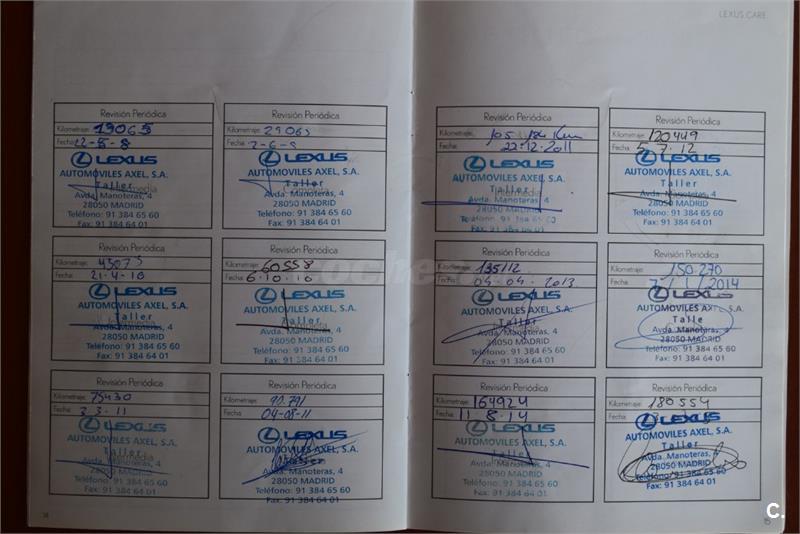 LEXUS CARE
Revisión Periódica
Kilometraje: 13065
Fecha: 22-8-8
LEXUS
AUTOMOVILES AXEL, S.A.
Taller
Avda. Manoteras, 4
28050 MADRID
Teléfono: 91 384 65 60
Fax: 91 384 64 01
Revisión Periódica
Kilometraje: 29065
Fecha: 2-6-9
LEXUS
AUTOMOVILES AXEL, S.A.
Taller
Avda. Manoteras, 4
28050 MADRID
Teléfono: 91 384 65 60
Fax: 91 384 64 01
Revisión Periódica
Kilometraje: 43075
Fecha: 21-4-10
LEXUS
AUTOMOVILES AXEL, S.A.
Taller
Avda. Manoteras, 4
28050 MADRID
Teléfono: 91 384 65 60
Fax: 91 384 64 01
Revisión Periódica
Kilometraje: 60558
Fecha: 6-10-10
LEXUS
AUTOMOVILES AXEL, S.A.
Taller
Avda. Manoteras, 4
28050 MADRID
Teléfono: 91 384 65 60
Fax: 91 384 64 01
Revisión Periódica
Kilometraje: 75430
Fecha: 3-3-11
LEXUS
AUTOMOVILES AXEL, S.A.
Taller
Avda. Manoteras, 4
28050 MADRID
Teléfono: 91 384 65 60
Fax: 91 384 64 01
Revisión Periódica
Kilometraje: 90.791
Fecha: 04-08-11
LEXUS
AUTOMOVILES AXEL, S.A.
Taller
Avda. Manoteras, 4
28050 MADRID
Teléfono: 91 384 65 60
Fax: 91 384 64 01
14
Revisión Periódica
Kilometraje: 105 184 Km
Fecha: 22.12.2011
LEXUS
AUTOMOVILES AXEL, S.A.
Taller
Avda. Manoteras, 4
28050 MADRID
Teléfono: 91 384 65 60
Fax: 91 384 64 01
Revisión Periódica
Kilometraje: 120449
Fecha: 5-7-12
LEXUS
AUTOMOVILES AXEL, S.A.
Taller
Avda. Manoteras, 4
28050 MADRID
Teléfono: 91 384 65 60
Fax: 91 384 64 01
Revisión Periódica
Kilometraje: 135112
Fecha: 04.04.2013
LEXUS
AUTOMOVILES AXEL, S.A.
Taller
Avda. Manoteras, 4
28050 MADRID
Teléfono: 91 384 65 60
Fax: 91 384 64 01
Revisión Periódica
Kilometraje: 150.270
Fecha: 7/1/2014
LEXUS
AUTOMOVILES AXEL, S.A.
Talle
Avda. Manoteras, 4
28050 MADRID
Teléfono: 91 384 65 60
Fax: 91 384 64 01
Revisión Periódica
Kilometraje: 164924
Fecha: 11-8-14
LEXUS
AUTOMOVILES AXEL, S.A.
Taller
Avda. Manoteras, 4
28050 MADRID
Teléfono: 91 384 65 60
Fax: 91 384 64 01
Revisión Periódica
Kilometraje: 180554
Fecha:
LEXUS
AUTOMOVILES AXEL, S.A.
Taller
Avda. Manoteras, 4
28050 MADRID
Teléfono: 91 384 65 60
Fax: 91 384 64 01
15
C.